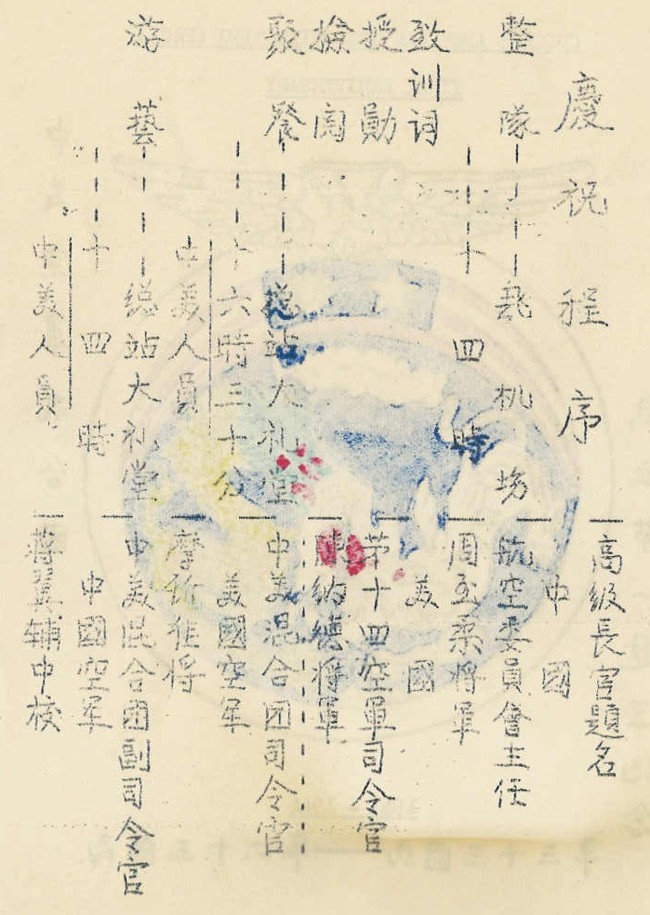 慶祝程序
整隊———飛机場
———十四時
致训词
授勛
檢阅
聚餐———总站大礼堂
———十六時三十分
中美人員
游藝———总站大礼堂
———十四時
中美人員
高級長官題名
中國
航空委員會主任
周至柔将軍
美國
第十四空軍司令官
陳納德将軍
中美混合团司令官
美國空军
准将
中美混合团副司令官
中國空军
蒋翼辅中校